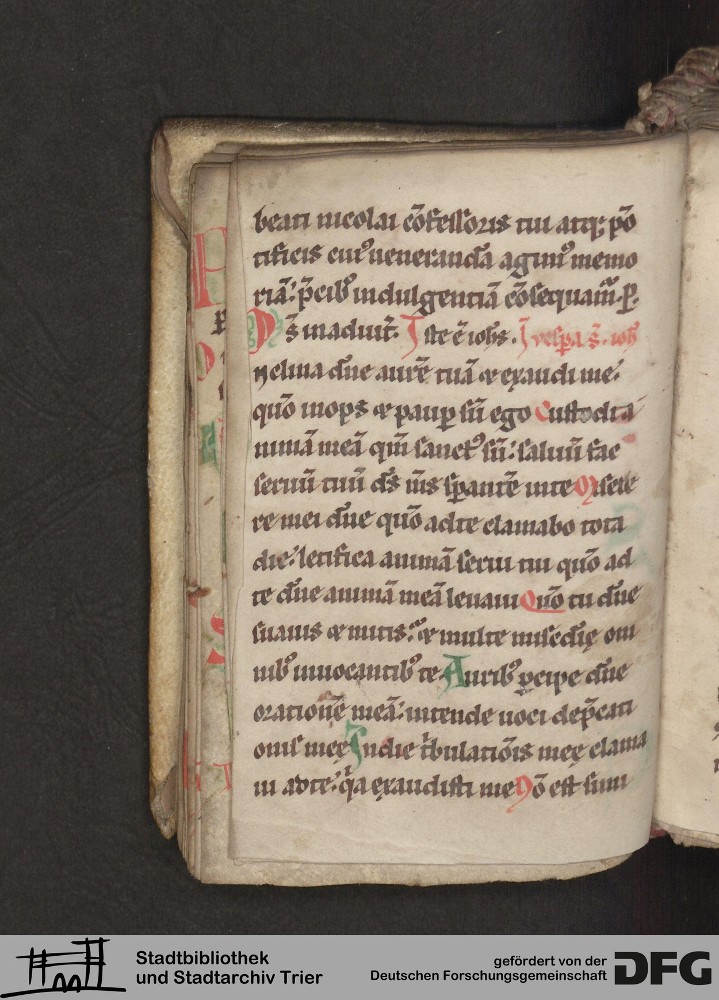 beati nicolai cōfessoris tui atq; pō
tificis cui⁹ ueneranda agim⁹ memo
riā: p̄cib⁹ indulgentiā cōsequam̄. p̲.
D s̄ in adiut̄. Iste ē ioh̄s. I uesp̄a s̄. ioh̄
Inclina dn̄e aurē tuā ⁊ exaudi me:
quō inops ⁊ paup̲ sū ego Custodi a
nimā meā qm̄ sanct⁹ sū: saluū fac
seruū tuū ds̄ m̄s sp̲antē in te Misere
re mei dn̄e quō ad te clamabo tota
die: letifica animā serui tui quō ad
te dn̄e animā meā leuaui Quō tu dn̄e
suauis ⁊ mitis: ⁊ multe mīsedīę om
nib⁹ inuocantib⁹ te Aurib⁹ p̲cipe dn̄e
orationē meā: intende uoci dep̄cati
onis meę In die t̄bulatiōis meę clama
ui ad te: q̄a exaudisti me Nō est simi
Stadtbibliothek
und Stadtarchiv Trier
gefördert von der
Deutschen Forschungsgemeinschaft
DFG